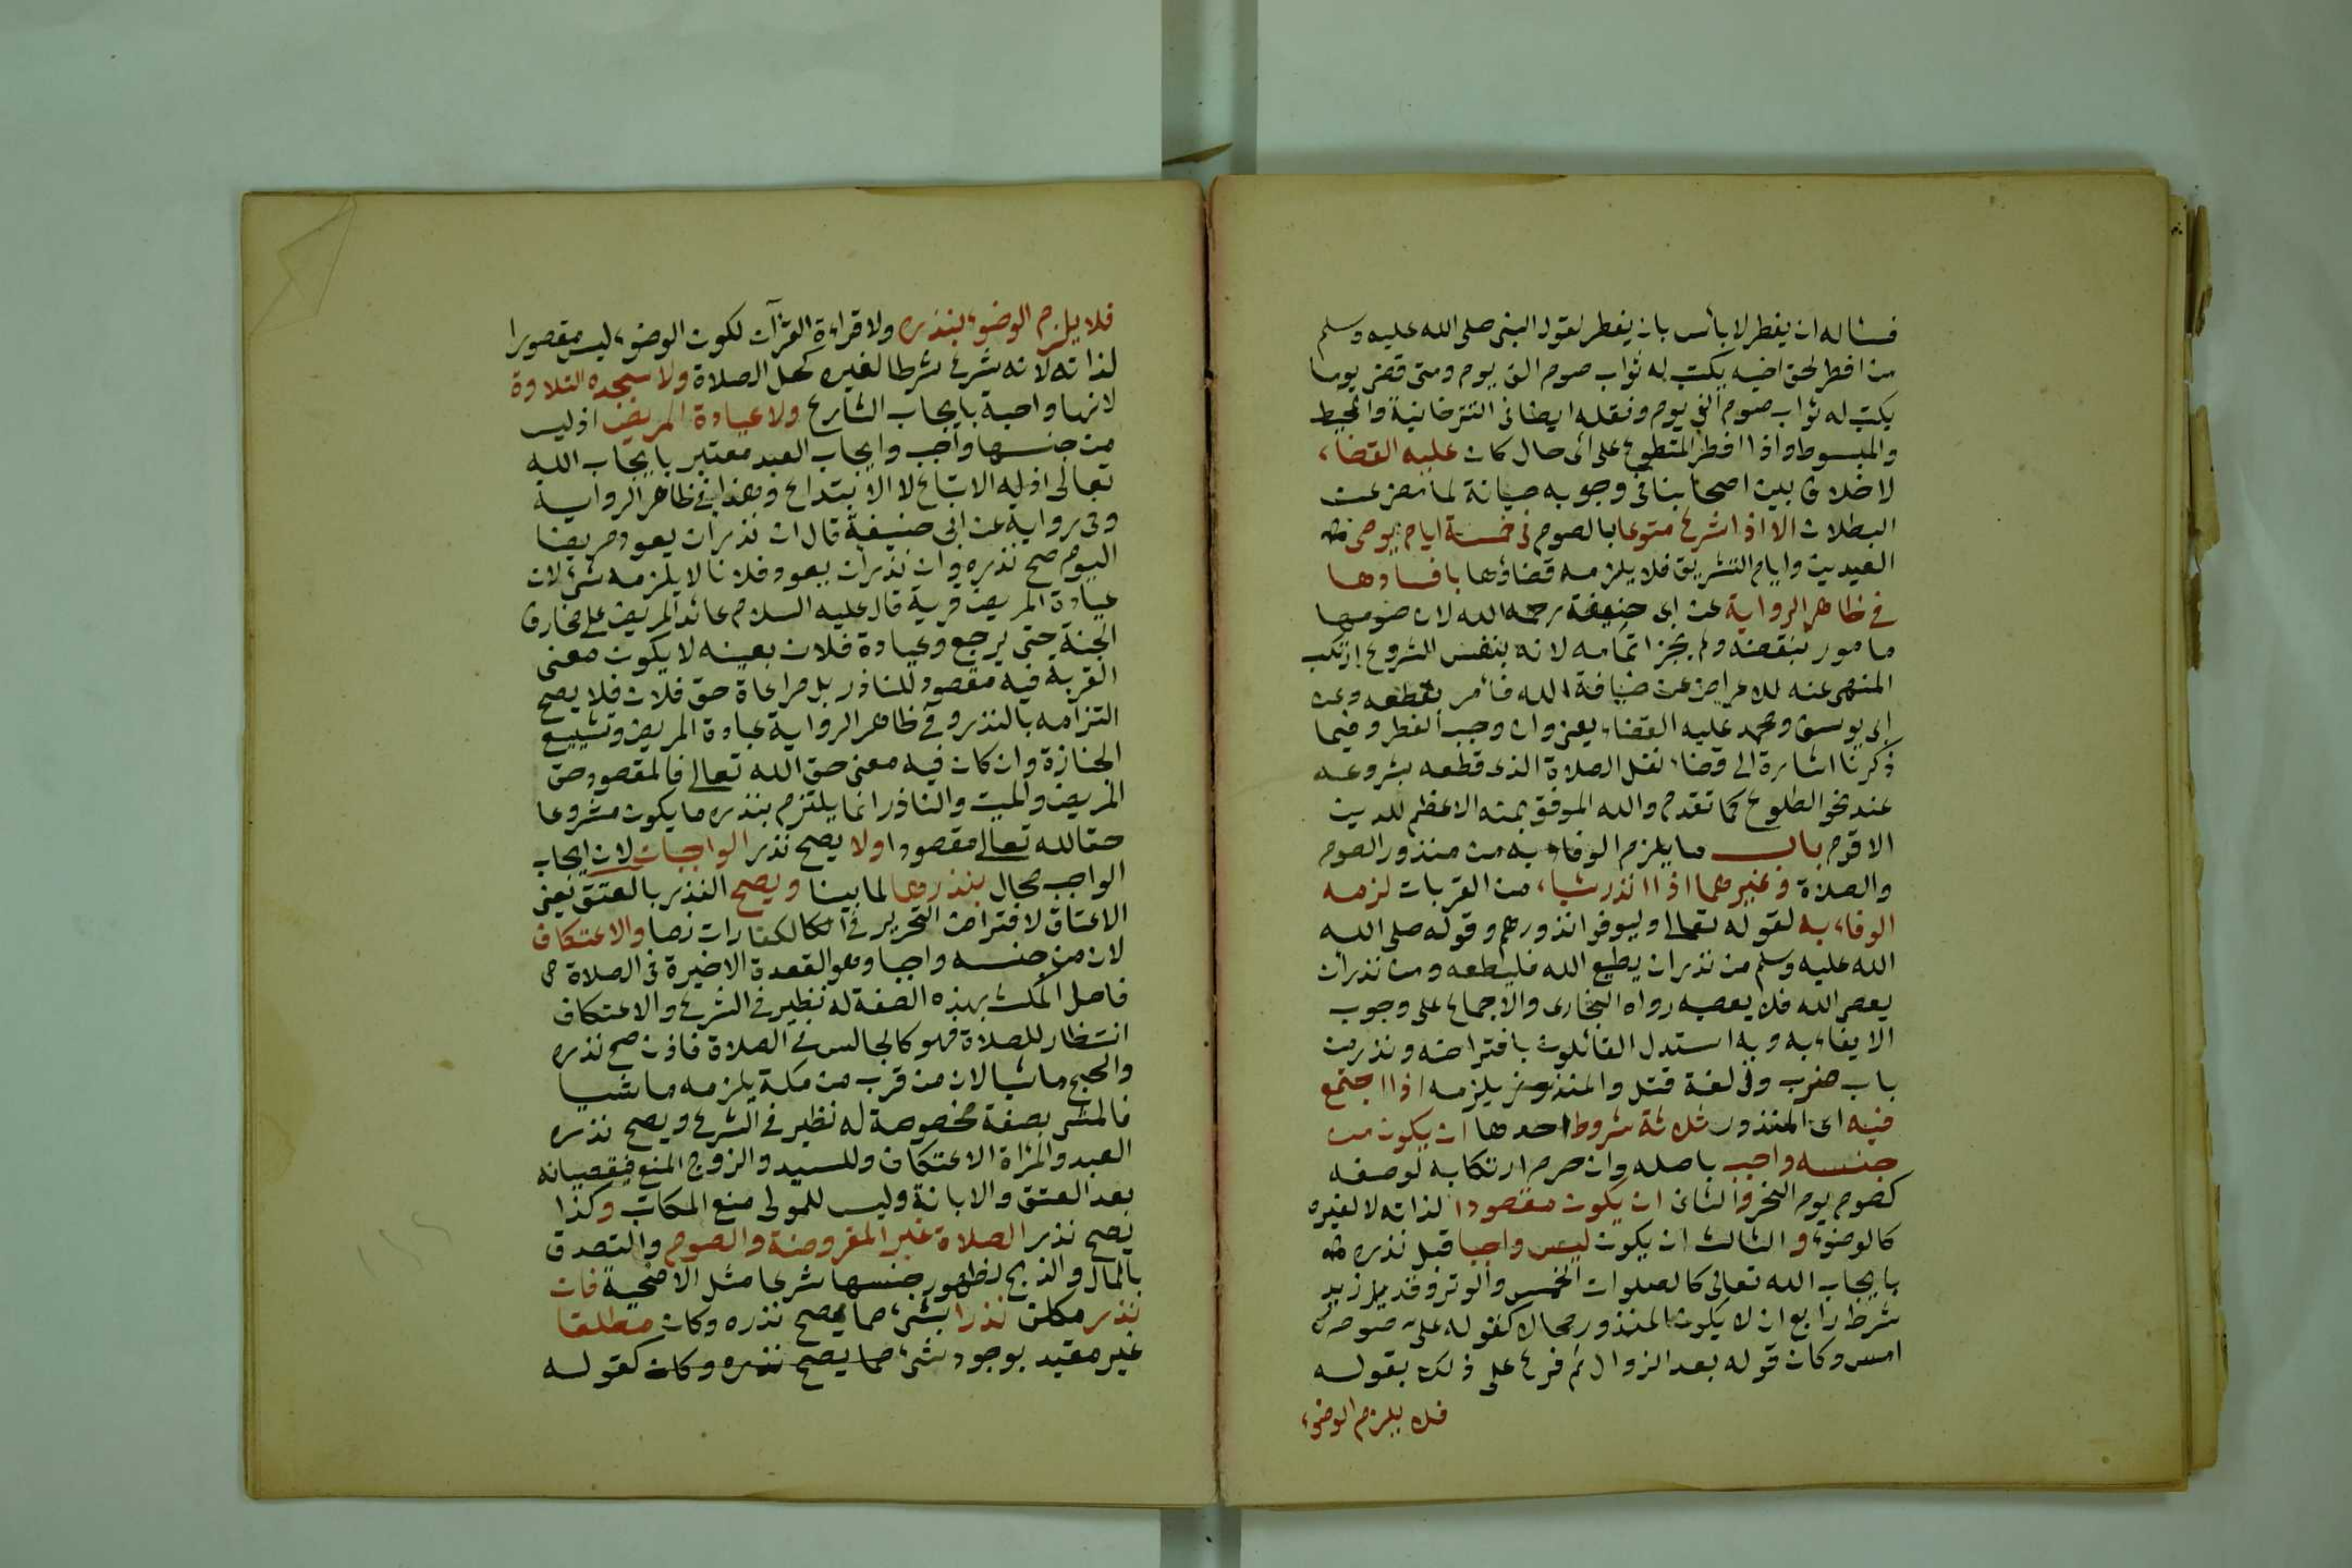 فسئاله ان يفطر لا بأس بان يفطر لقول النبى صلى الله عليه وسلم
من افطر لحق اخيه يكتب له ثواب صوم الف يوم ومتى قضى يوما
يكتب له ثواب صوم الفى يوم ونقله ايضا فى التترخانية والمحيط
والمبسوط واذا افطر المتطوع على اى حال كان عليه القضاء
لا خلاف بين اصحابنا فى وجوبه صيانة لما مضى عن
البطلان الا اذا شرع متوعا بالصوم فى خمسة ايام يومى
العيدين وايام التشريق فلا يلزمه قضاؤها بافسادها
فى ظاهر الرواية عن ابى حنيفة رحمه الله لان صومها
مامور بنقضه ولم يجز اتمامه لانه بنفس الشروع ارتكب
المنهى عنه للاعراض عن ضيافة الله فأمر بقطعه وعن
ابى يوسف ومحمد عليه القضاء يعنى وان وجب الفطر وفيما
ذكرنا اشارة الى قضاء نفل الصلاة الذى قطعه بشروعه
عند نحو الطلوع كما تقدم والله الموفق بمنه الاعظم للدين
الاقوم باب ما يلزم الوفاء به من منذور الصوم
والصلاة وغيرهما اذا نذر شياء من القربات لزمه
الوفاء به لقوله تعالى وليوفوا نذورهم وقوله صلى الله
الله عليه وسلم من نذر ان يطيع الله فليطعه ومن نذر ان
يعصى الله فلا يعصيه رواه البخارى والاجماع على وجوب
الايفاء به وبه استدل القائلون بافتراضه ونذر من
باب ضرب وفى لغة قتل والمنذور يلزمه اذا اجتمع
فيه اى المنذور ثلاثة شروط احدها ان يكون من
جنسه واجب باصله وان حرم ارتكابه لوصفه
كصوم يوم النحر والثانى ان يكون مقصودا لذاته لا لغيره
كالوضوء والثالث ان يكون ليس واجبا قبل نذره
بايجاب الله تعالى كالصلوات الخمس والوتر وقد زيد
شرط رابع ان لا يكون المنذور محالا كقوله على صوم
امس وكان قوله بعد الزوال ثم فرع على ذلك بقوله
فلا يلزم الوضوء
فلا يلزم الوضوء بنذره ولا قراءة القرآن لكون الوضوء ليس مقصورا
لذاته لانه شرع شرطا لغيره كحل الصلاة ولا سجده التلاوة
لانها واجبة بايجاب الشارع ولا عيادة المريض اذ ليس
من جنسها واجب وايجاب العبد معتبر بايجاب الله
تعالى اذ له الاتباع لا الابتداع وهذا فى ظاهر الرواية
وفى رواية عن ابى حنيفة قال ان نذر ان يعود مريضا
اليوم صح نذره وان نذر ان يعود فلانا لا يلزمه شئ لان
عيادة المريض قربة قال عليه السلام عائد المريض على مخارف
الجنة حتى يرجع وعيادة فلان بعينه لا يكون معنى
القربة فيه مقصود للناذر بل مراعاة حق فلان فلا يصح
التزامه بالنذر وفى ظاهر الرواية عيادة المريض وتشييع
الجنازة وان كان فيه معنى حق الله تعالى فالمقصود حق
المريض والميت والناذر انما يلتزم بنذره ما يكون مشروعا
حقا لله تعالى مقصودا ولا يصح نذر الواجبات لان ايجاب
الواجب محال بنذرها لما بينا ويصح النذر بالعتق يعنى
الاعتاق لافتراض التحرير فى الكفارات نصا والاعتكاف
لان من جنسه واجبا وهو القعدة الاخيرة فى الصلاة
فاصل المكث بهذه الصفة له نظير فى الشرع والاعتكاف
انتظار للصلاة فهو كالجالس فى الصلاة فاذن صح نذره
والحج ماشيا لان من قرب من مكة يلزمه ماشيا
فالمشى بصفة مخصوصة له نظير فى الشرع ويصح نذره
العبد والمرأة الاعتكاف وللسيد والزوج المنع فيقضيانه
بعد العتق والابانة وليس للمولى منع المكاتب وكذا
يصح نذر الصلاة غير المفروضة والصوم والتصدق
بالمال والذبح لظهور جنسها شرعا مثل الاضحية فان
نذر مكلف نذرا بشئ مما يصح نذره وكان مطلقا
غير مقيد بوجود شئ مما يصح نذره وكان كقوله